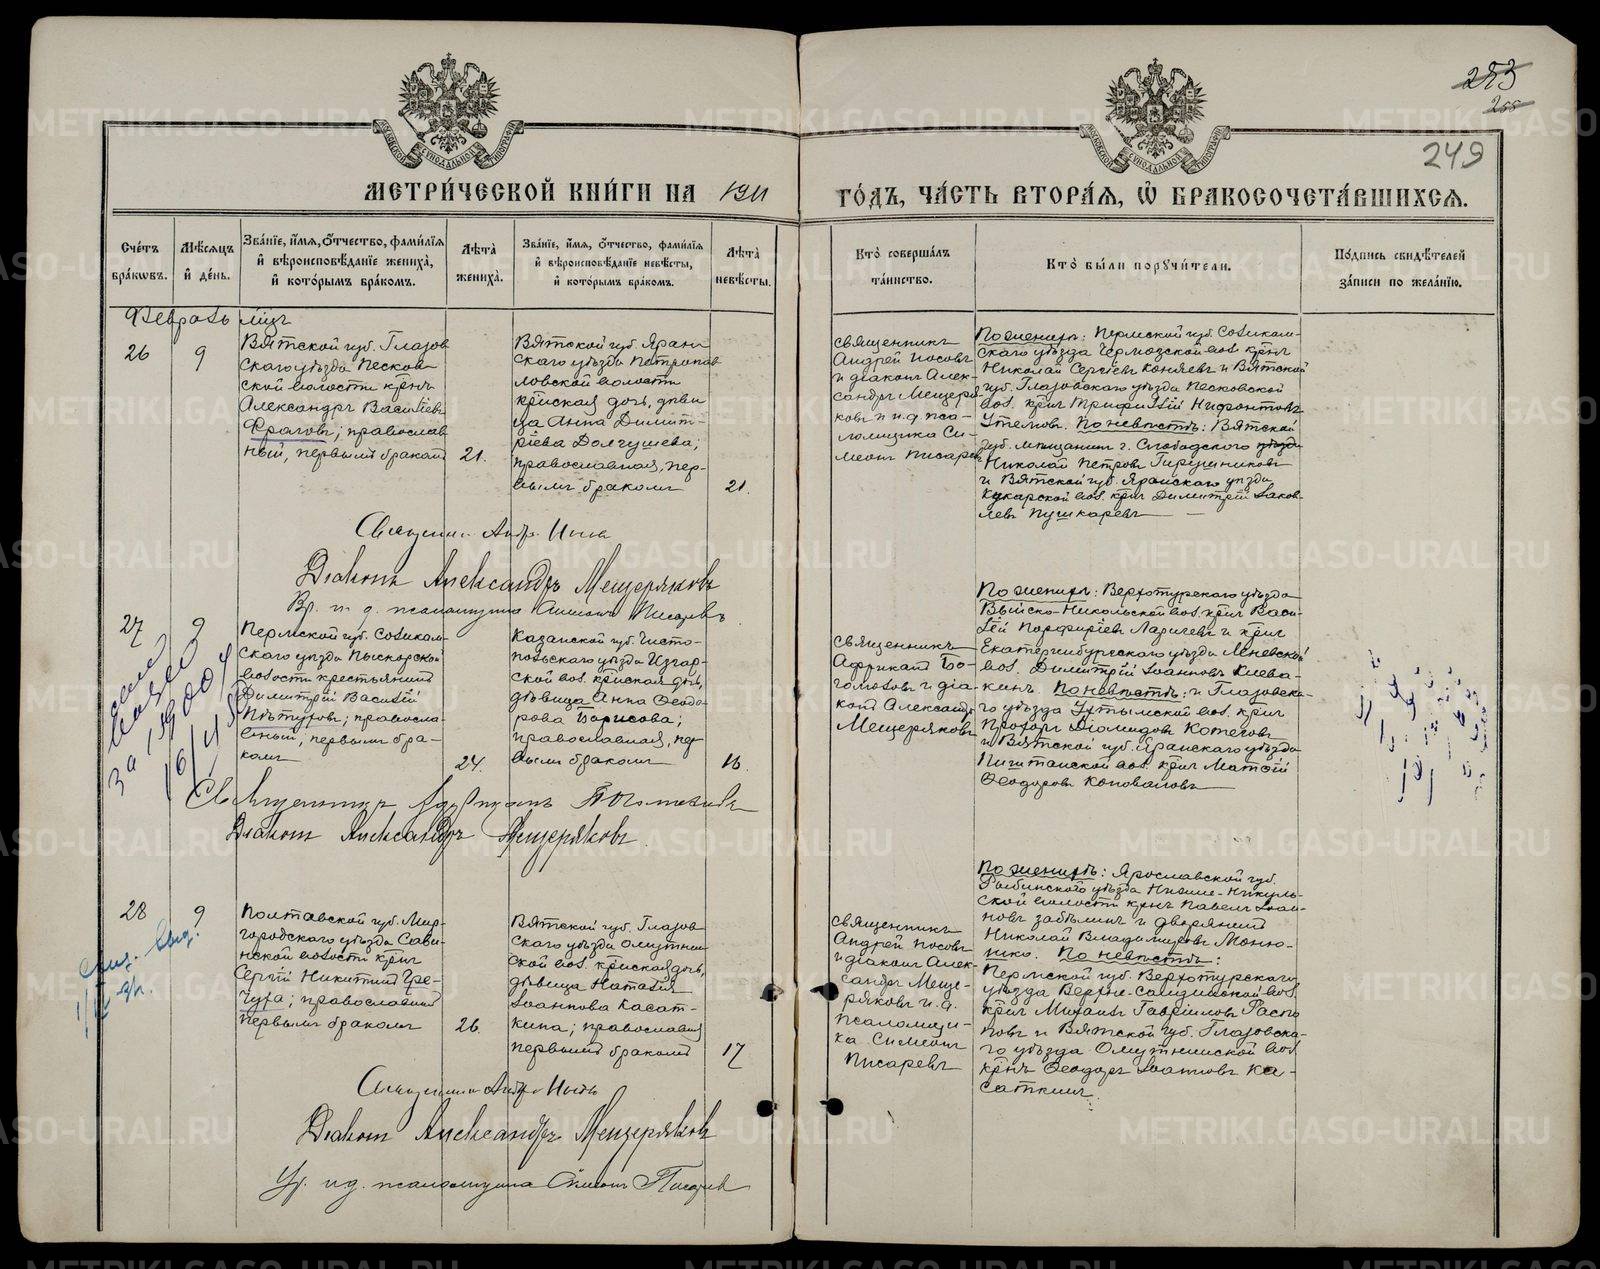 253
255
249
МЕТРИ́ЧЕСКОЙ КНИ́ГИ НА 1911 ГО́ДЪ, ЧА́СТЬ ВТОРА́Я, Ѡ БРАКОСОЧЕТА́ВШИХСЯ.
МОСКОВСКОЙ СУНОДАЛЬНОЙ ТИПОГРАФІИ
Сче́тъ бра́ковъ.
Мѣ́сяцъ и҆ де́нь.
Зва́нїе, и҆́мя, ѻ҆́тчество, фами́лїя и҆ вѣроисповѣ́данїе жениха̀, и҆ кото́рымъ бра́комъ.
Лѣ́та жениха̀.
Зва́нїе, и҆́мя, ѻ҆́тчество, фами́лїя и҆ вѣроисповѣ́данїе невѣ́сты, и҆ кото́рымъ бра́комъ.
Лѣ́та невѣ́сты.
Кто̀ соверша́лъ та́инство.
Кто̀ бы́ли поручи́тели.
По́дпись свидѣ́телей за́писи по жела́нїю.
Февраль мцъ
26
9
Вятской губ. Глазов
скаго уѣзда Песков
ской волости крнъ
Александръ Васильевъ
Фроловъ; православ
ный, первымъ бракомъ
21.
Вятской губ. Яран
скаго уѣзда Петропав
ловской волости
крнская дочь, дѣви
ца Анна Димит-
ріева Долгушева;
православная, пер-
вымъ бракомъ
21.
Священникъ
Андрей Носовъ
и діаконъ Алек-
сандръ Мещеря
ковъ и и.д. пса-
ломщика Си-
меонъ Писаревъ
По женихѣ: Пермской губ. Соликам-
скаго уѣзда Чермозской вол. крнъ
Николай Сергѣевъ Коняевъ и Вятской
губ. Глазовскаго уѣзда Песковской
вол. крнъ Трифилій Нифонтовъ
Утемовъ. По невѣстѣ: Вятской
губ. мѣщанинъ г. Слободского уѣзда
Николай Петровъ Гирушниковъ
и Вятской губ. Яранскаго уѣзда
Кукарской вол. крнъ Димитрій Іаков-
левъ Пушкаревъ
Священникъ Андр. Носовъ
Діаконъ Александръ Мещеряковъ
Вр. и. д. псаломщика Симеонъ Писаревъ
27
9
Пермской губ. Соликам-
скаго уѣзда Пыскорской
волости крестьянинъ
Димитрій Василій
Пѣтуховъ; правосла-
вный, первымъ бра-
комъ
24.
Казанской губ. Чисто-
польскаго уѣзда Изгар-
ской вол. крнская дочь,
дѣвица Анна Ѳеодо-
рова Борисова;
православная, пер
вымъ бракомъ
16.
Священникъ
Африканъ Бо-
голюбовъ и діа-
конъ Александръ
Мещеряковъ
По женихѣ: Верхотурскаго уѣзда
Выйско-Никольской вол. крнъ Васи-
лій Порфиріевъ Ларичевъ и крнъ
Екатеринбургскаго уѣзда Невской
вол. Димитрій Іоанновъ Клева-
кинъ. По невѣстѣ: и Глазовска-
го уѣзда Утымской вол. крнъ
Прохоръ Діомидовъ Котеговъ
и Вятской губ. Яранскаго уѣзда
Пиштанской вол. крнъ Матѳій
Ѳеодоровъ Коноваловъ
Священникъ Африканъ Боголюбовъ
Діаконъ Александръ Мещеряковъ
28
9
Полтавской губ. Мир
городскаго уѣзда Сави-
нской волости крнъ
Сергій Никитинъ Гре-
чуха; православный
первымъ бракомъ
26.
Вятской губ. Глазов
скаго уѣзда Омутнин
ской вол. крнская дочь,
дѣвица Наталія
Іоаннова Касат-
кина; православная
первымъ бракомъ
17
Священникъ
Андрей Носовъ
и діаконъ Алек-
сандръ Меще-
ряковъ и.д.
псаломщи-
ка Симеонъ
Писаревъ
По женихѣ: Ярославской губ.
Рыбинскаго уѣзда Ниже-Никуль-
ской волости крнъ Павелъ Іоан-
новъ Забѣлинъ и дворянинъ
Николай Владимировъ Моню-
шко. По невѣстѣ:
Пермской губ. Верхотурскаго
уѣзда Верхне-Салдинской вол.
крнъ Михаилъ Гавріиловъ Распо
повъ и Вятской губ. Глазовска-
го уѣзда Омутнинской вол.
крнъ Ѳеодоръ Іоанновъ Ка-
саткинъ.
Священникъ Андр. Носовъ
Діаконъ Александръ Мещеряковъ
Вр. и.д. псаломщика Симеонъ Писаревъ
METRIKI.GASO-URAL.RU